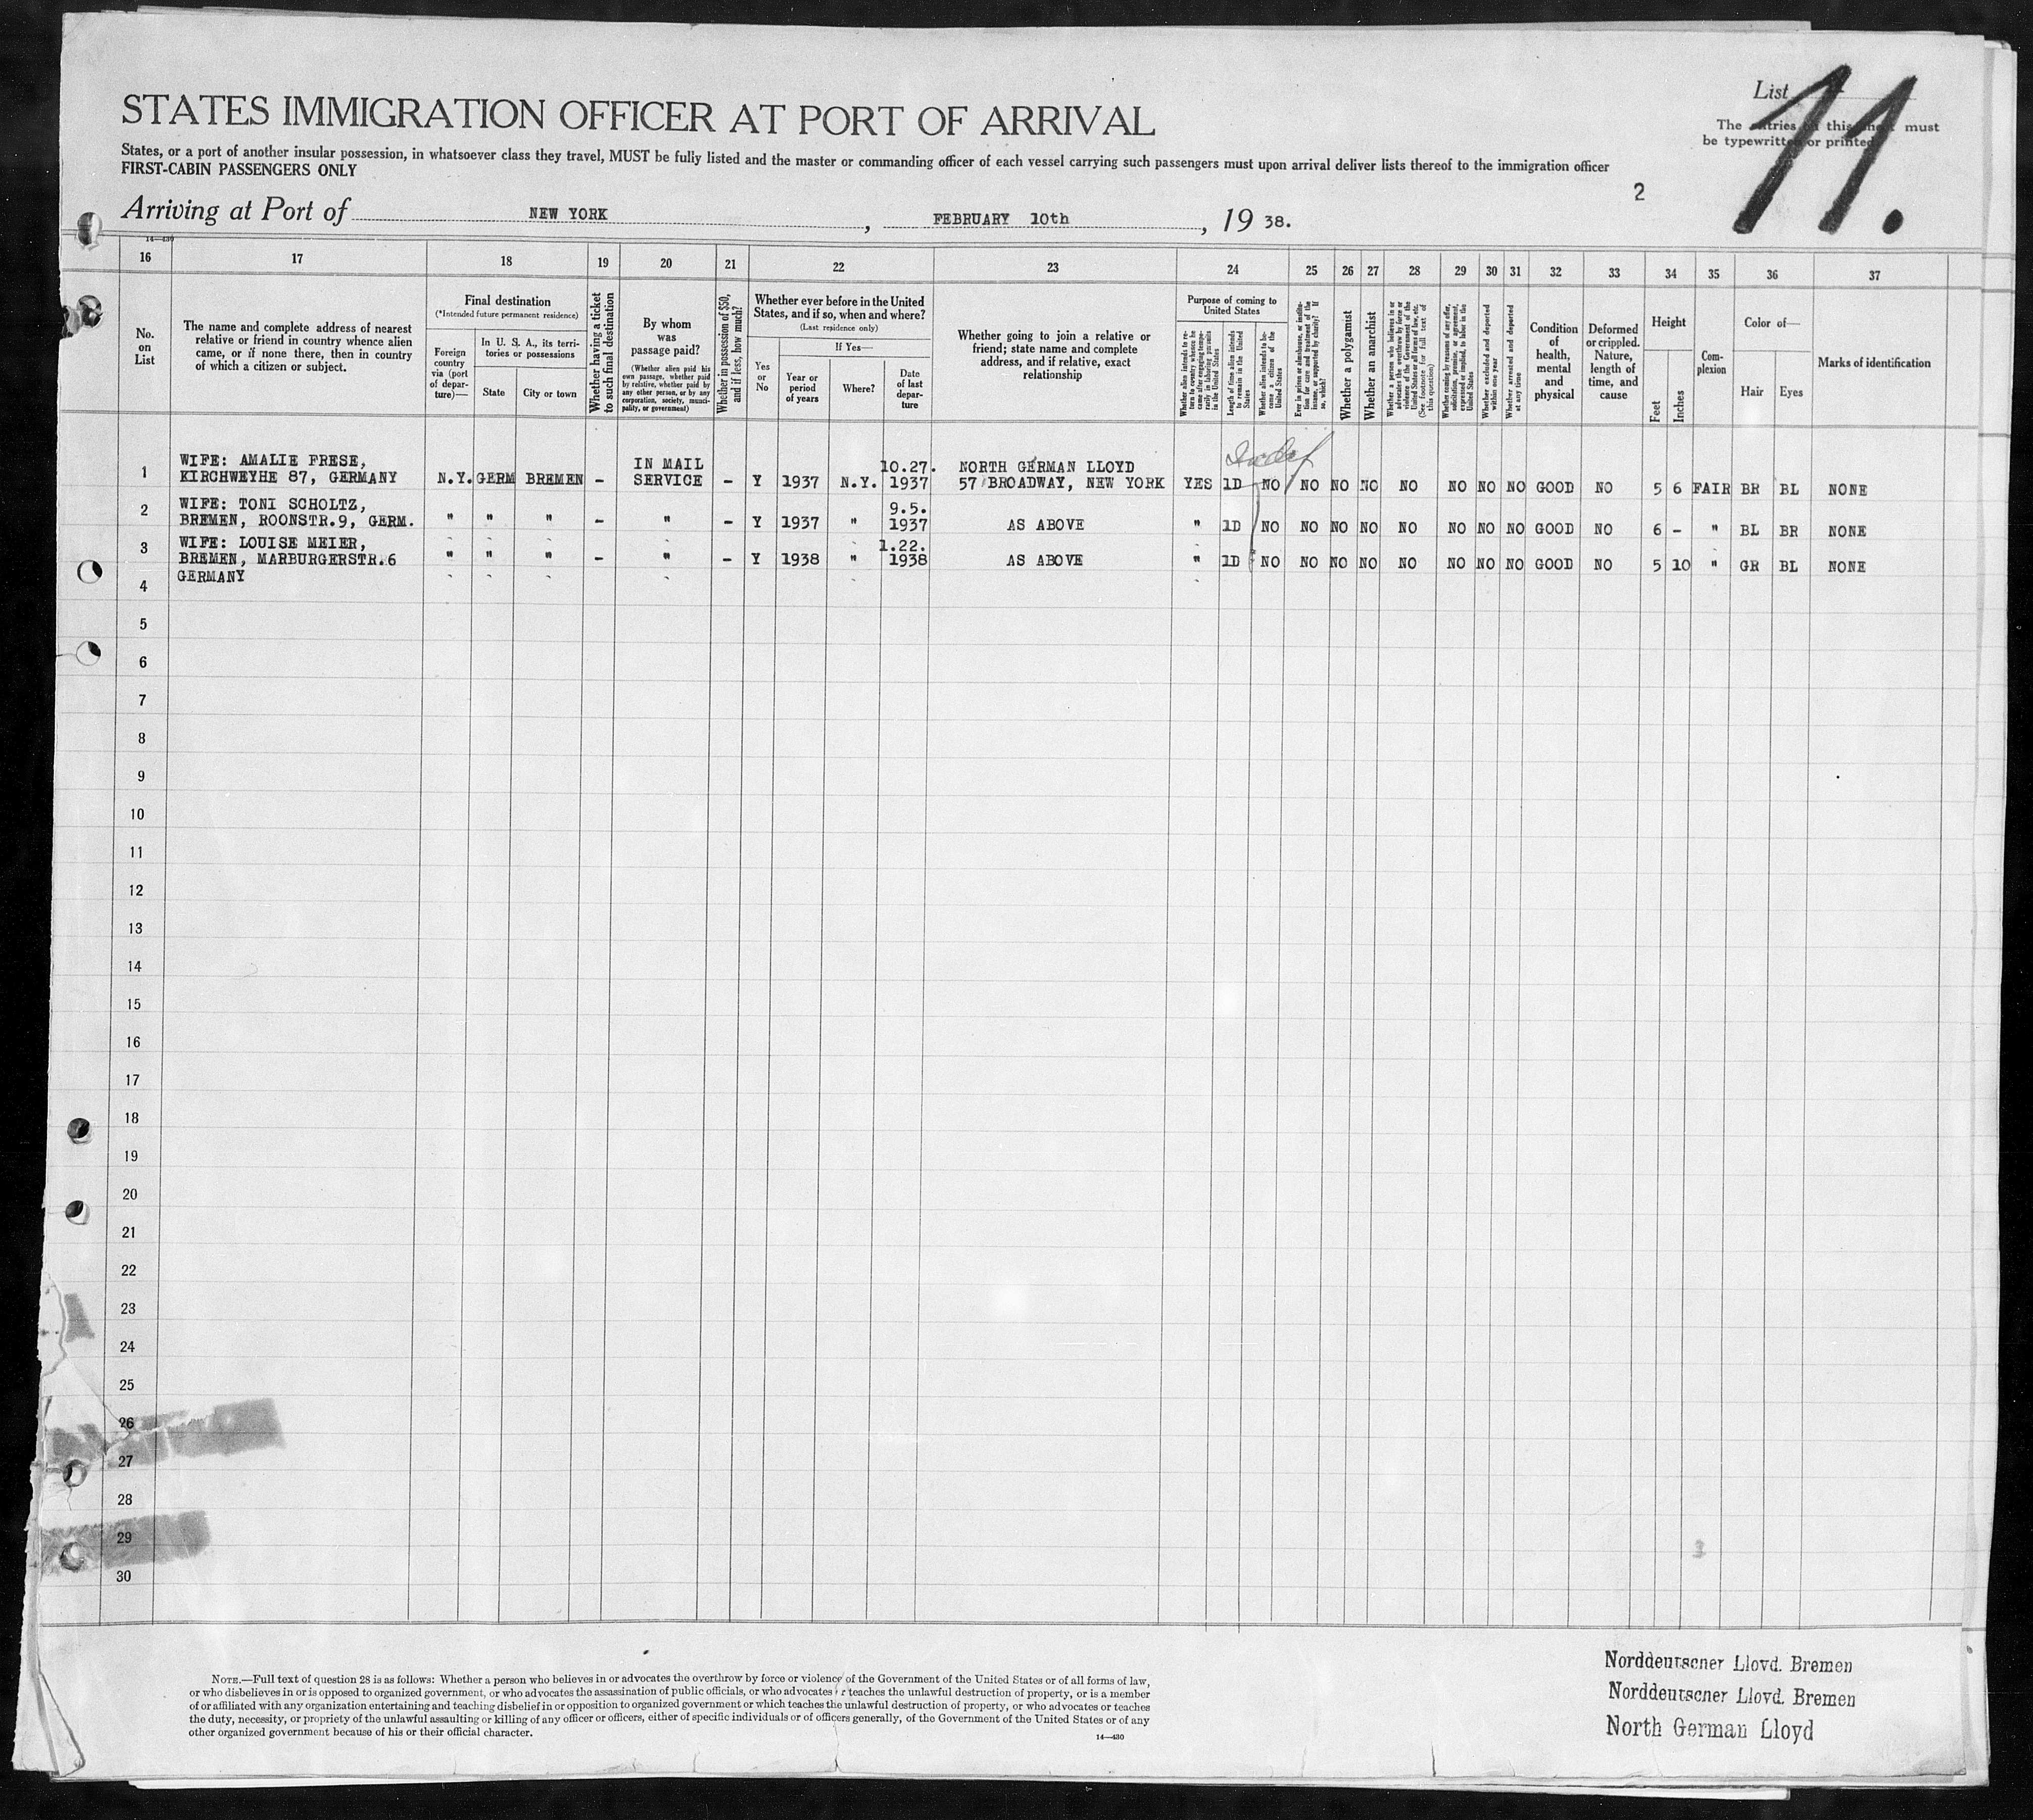 List
11.
STATES IMMIGRATION OFFICER AT PORT OF ARRIVAL
The entries on this sheet must
be typewritten or printed
States, or a port of another insular possession, in whatsoever class they travel, MUST be fully listed and the master or commanding officer of each vessel carrying such passengers must upon arrival deliver lists thereof to the immigration officer
FIRST-CABIN PASSENGERS ONLY
2
Arriving at Port of NEW YORK, FEBRUARY 10th, 19 38.
14—430
16 17 18 19 20 21 22 23 24 25 26 27 28 29 30 31 32 33 34 35 36 37
No. on List
The name and complete address of nearest relative or friend in country whence alien came, or if none there, then in country of which a citizen or subject.
Final destination
(*Intended future permanent residence)
Foreign country via (port of departure)—
In U. S. A., its territories or possessions
State
City or town
Whether having a ticket to such final destination
By whom was passage paid?
(Whether alien paid his own passage, whether paid by relative, whether paid by any other person, or by any corporation, society, municipality, or government)
Whether in possession of $50, and if less, how much?
Whether ever before in the United States, and if so, when and where?
(Last residence only)
Yes or No
If Yes—
Year or period of years
Where?
Date of last departure
Whether going to join a relative or friend; state name and complete address, and if relative, exact relationship
Purpose of coming to United States
Whether alien intends to return to country whence he came after engaging temporarily in laboring pursuits in the United States
Length of time alien intends to remain in the United States
Whether alien intends to become a citizen of the United States
Ever in prison or almshouse, or institution for care and treatment of the insane, or supported by charity? If so, which?
Whether a polygamist
Whether an anarchist
Whether a person who believes in or advocates the overthrow by force or violence of the Government of the United States or all forms of law, etc. (See footnote for full text of this question)
Whether coming by reason of any offer, solicitation, promise, or agreement, expressed or implied, to labor in the United States
Whether excluded and deported within one year
Whether arrested and deported at any time
Condition of health, mental and physical
Deformed or crippled. Nature, length of time, and cause
Height
Feet
Inches
Complexion
Color of—
Hair
Eyes
Marks of identification
Indef
1 WIFE: AMALIE FRESE, KIRCHWEYHE 87, GERMANY N.Y. GERM BREMEN – IN MAIL SERVICE – Y 1937 N.Y. 10.27. 1937 NORTH GERMAN LLOYD 57 BROADWAY, NEW YORK YES 1D NO NO NO NO NO NO NO NO GOOD NO 5 6 FAIR BR BL NONE
2 WIFE: TONI SCHOLTZ, BREMEN, ROONSTR.9, GERM. " " " – " – Y 1937 " 9.5. 1937 AS ABOVE " 1D NO NO NO NO NO NO NO NO GOOD NO 6 – " BL BR NONE
3 WIFE: LOUISE MEIER, BREMEN, MARBURGERSTR.6 " " " – " – Y 1938 " 1.22. 1938 AS ABOVE " 1D NO NO NO NO NO NO NO NO GOOD NO 5 10 " GR BL NONE
4 GERMANY
5
6
7
8
9
10
11
12
13
14
15
16
17
18
19
20
21
22
23
24
25
26
27
28
29
30
NOTE.—Full text of question 28 is as follows: Whether a person who believes in or advocates the overthrow by force or violence of the Government of the United States or of all forms of law,
or who disbelieves in or is opposed to organized government, or who advocates the assassination of public officials, or who advocates or teaches the unlawful destruction of property, or is a member
of or affiliated with any organization entertaining and teaching disbelief in or opposition to organized government or which teaches the unlawful destruction of property, or who advocates or teaches
the duty, necessity, or propriety of the unlawful assaulting or killing of any officer or officers, either of specific individuals or of officers generally, of the Government of the United States or of any
other organized government because of his or their official character.
14—430
Norddeutscher Lloyd. Bremen
Norddeutscher Lloyd. Bremen
North German Lloyd